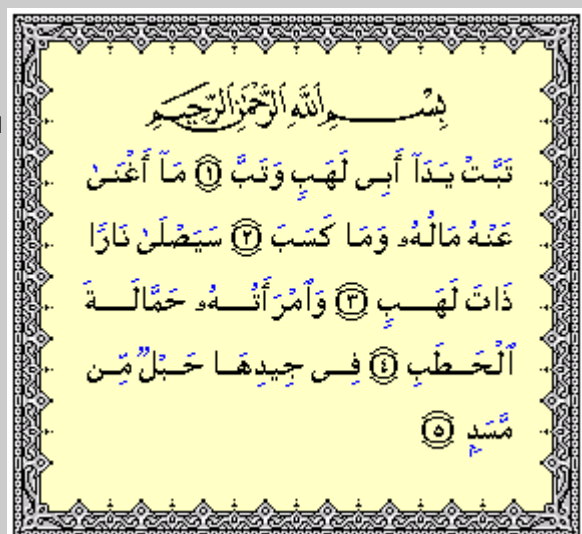 بِسْمِ ٱللَّهِ ٱلرَّحْمَٰنِ ٱلرَّحِيمِ
تَبَّتْ يَدَآ أَبِى لَهَبٍ وَتَبَّ ١ مَآ أَغْنَىٰ
عَنْهُ مَالُهُۥ وَمَا كَسَبَ ٢ سَيَصْلَىٰ نَارًا
ذَاتَ لَهَبٍ ٣ وَٱمْرَأَتُهُۥ حَمَّالَةَ
ٱلْحَطَبِ ٤ فِى جِيدِهَا حَبْلٌ مِّن
مَّسَدٍۭ ٥